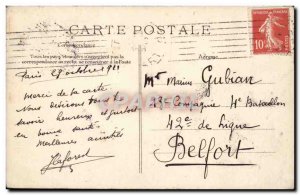 CARTE POSTALE
Correspondance
Tous les pays étrangers n'acceptent pas la
correspondance au recto. Se renseigner à la Poste
Adresse
10
Paris 29 octobre 1911
Merci de la carte
Nous désirons tous te
savoir heureux et surtout
en bonne santé
Meilleures amitiés
Mr Marius Gubian
Compagnie 4e Bataillon
42e de Ligne
Belfort